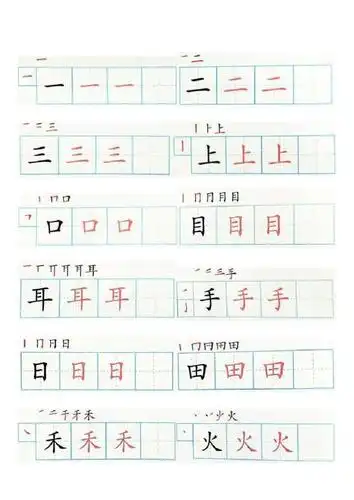 一
一 一 一 一
一 二
二 二 二
一 二 三
三 三 三
丨 ⺊ 上
丨 上 上 上
丨 冂 口
口 口 口
丨 冂 月 月 目
目 目 目
一 丅 丌 耳 耳 耳
耳 耳 耳
一 二 三 手
手 手 手
丨 冂 日 日
日 日 日
丨 冂 日 田 田
田 田 田
一 二 千 禾 禾
丶 禾 禾 禾
丶 丷 少 火
丶 火 火 火